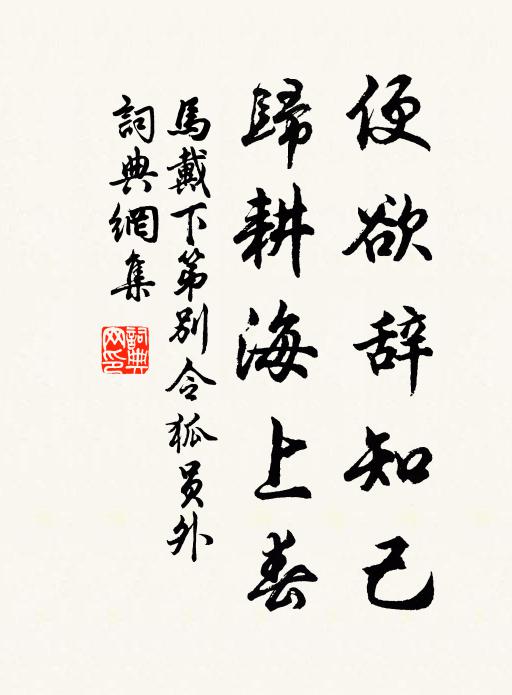 便欲辞知己
歸耕海上春
馬戴下第别令狐员外
詞典網集
詞典网印